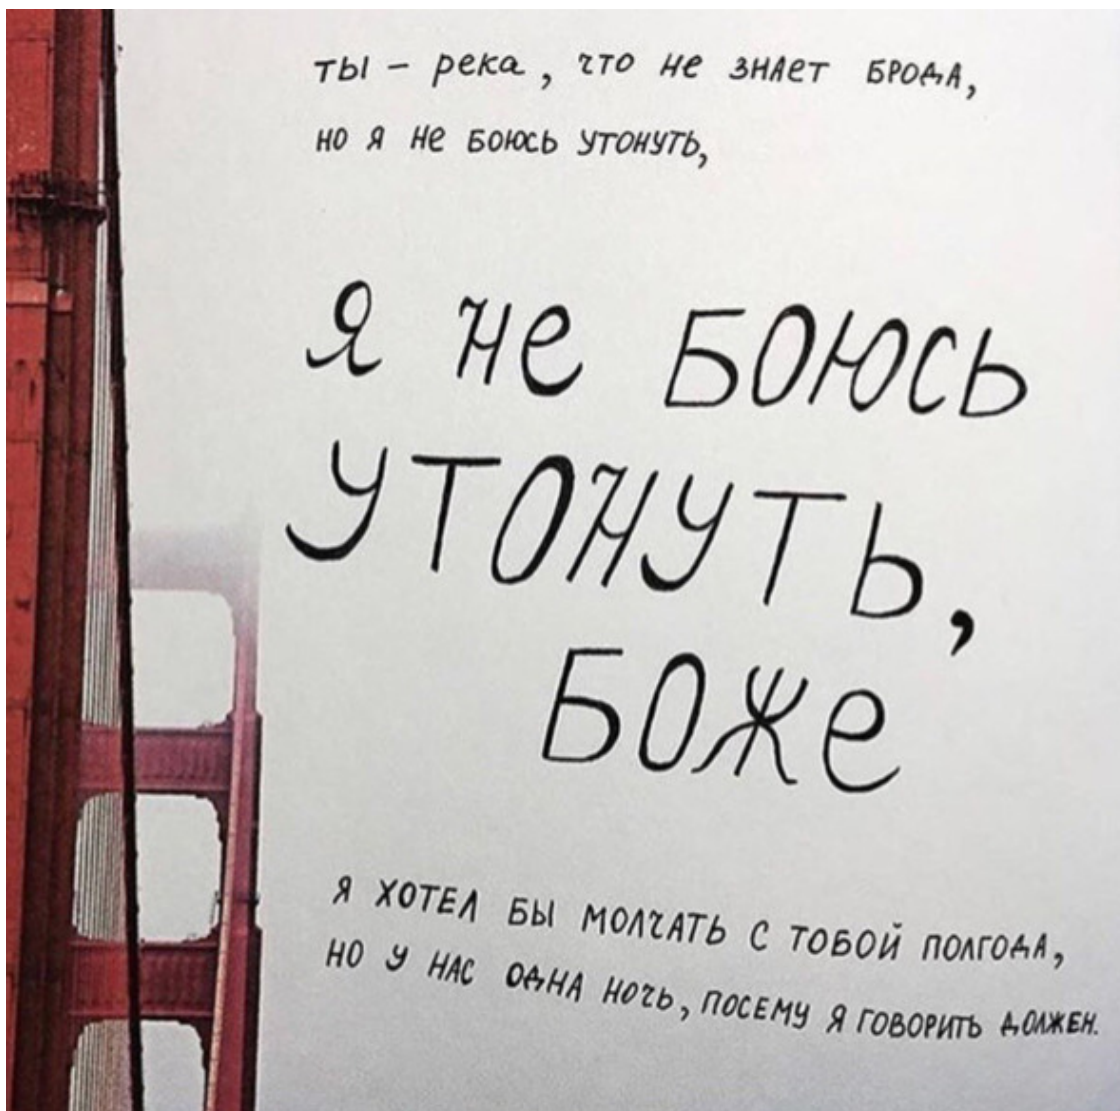 ты – река, что не знает брода,
но я не боюсь утонуть,
я не боюсь
утонуть,
боже
я хотел бы молчать с тобой полгода,
но у нас одна ночь, посему я говорить должен.